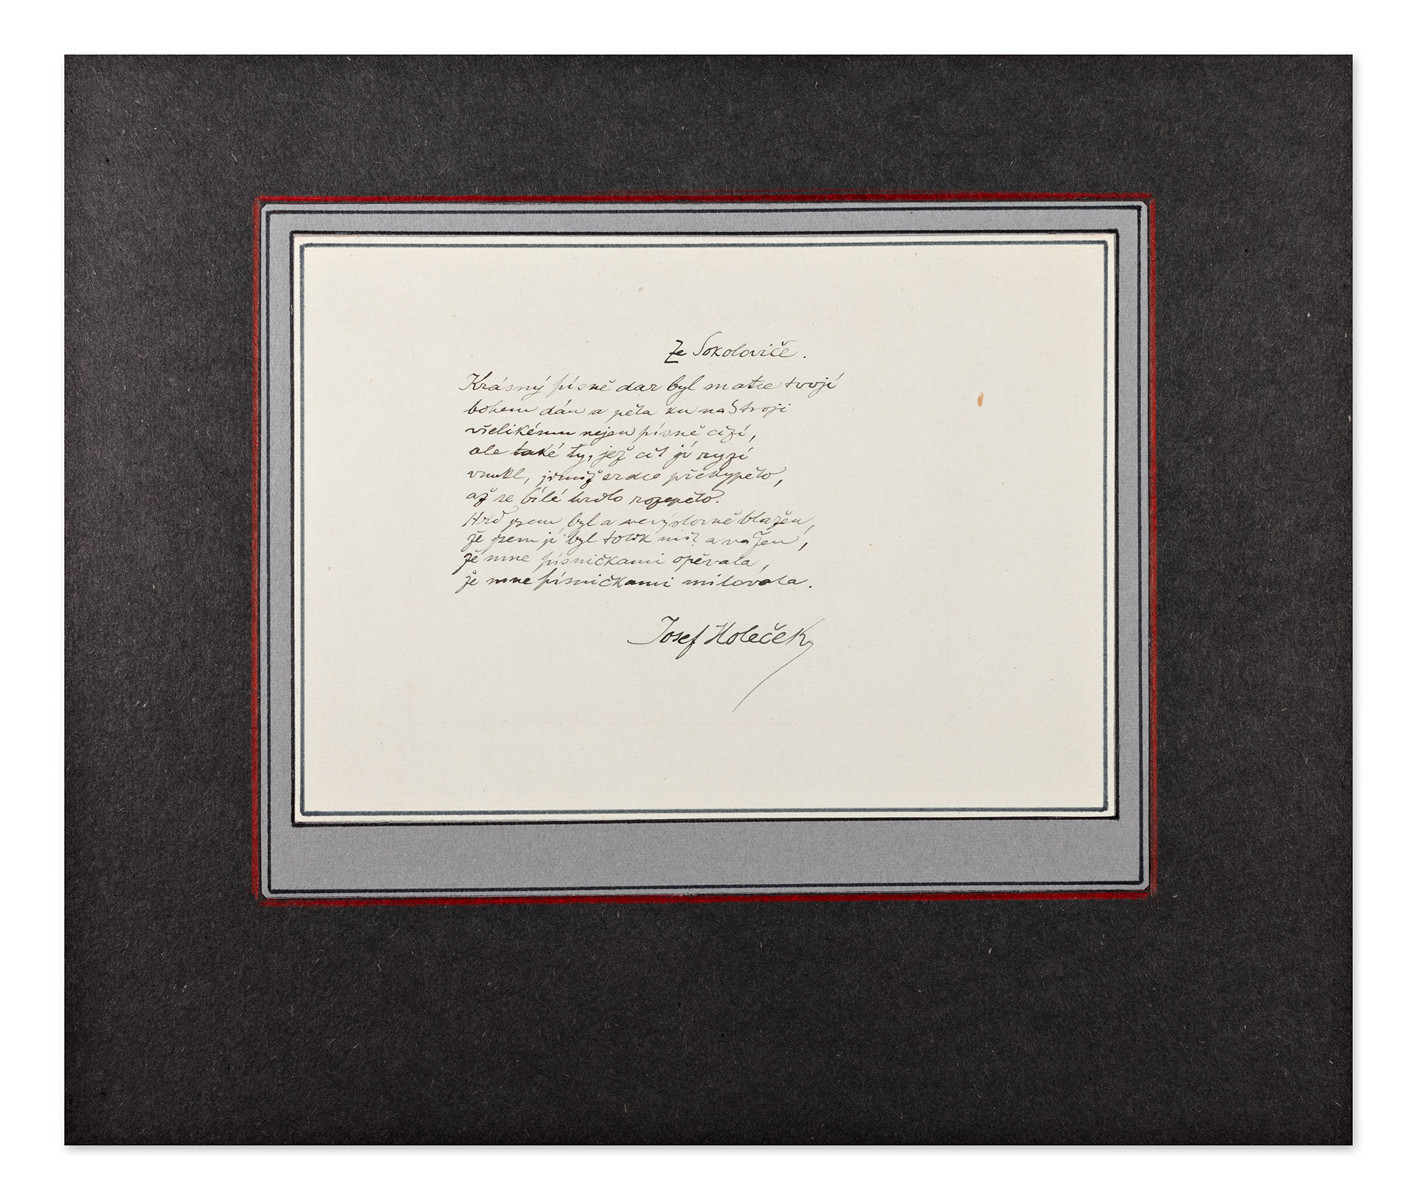 Ze Sokoloviče.
Krásný písně dar byl matce tvojí
bohem dán a pěla ku nástroji
všelikému nejen písně cizí,
ale také ty, jež cit jí ryzí
vnukl, jímž srdce překypělo,
až se bílé hrdlo rozepělo.
Hrd jsem byl a nevýslovně blažen,
že jsem jí byl tolik mil a vážen,
že mne písničkami opěvala,
že mne písničkami milovala.
Josef Holeček